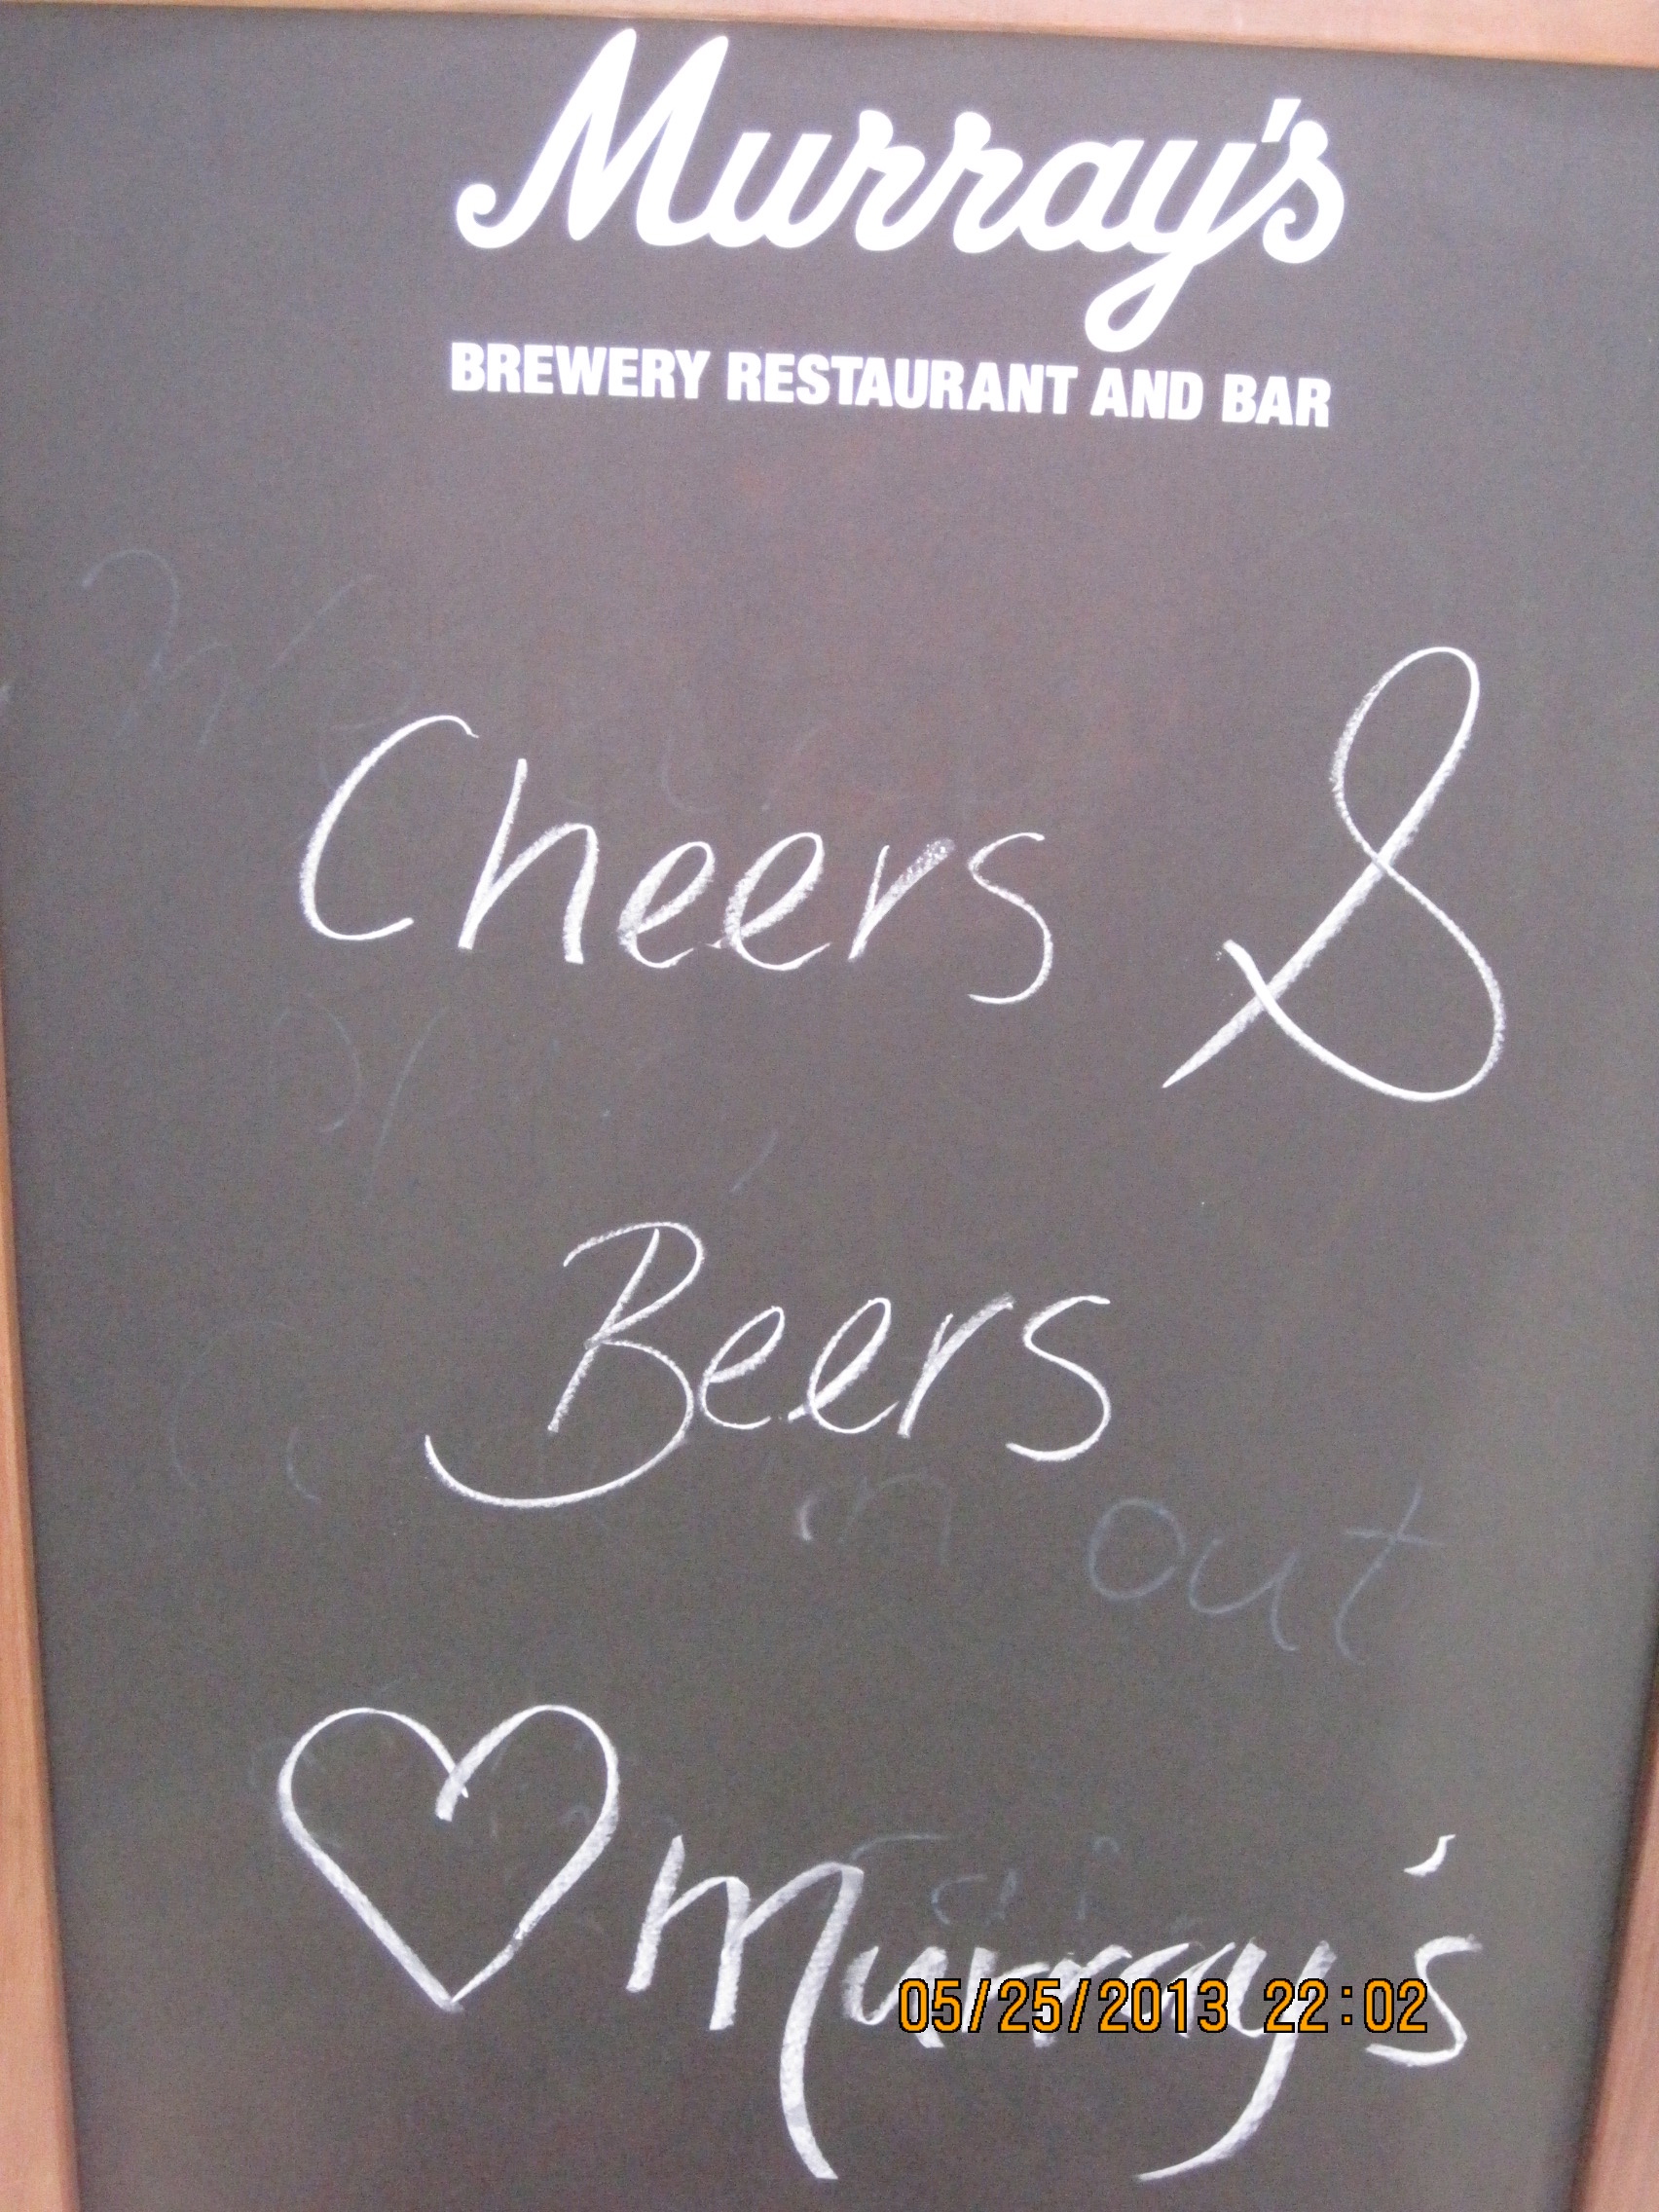 Murray's
BREWERY RESTAURANT AND BAR
Cheers &
Beers
out
♡ Murray's
05/25/2013 22:02